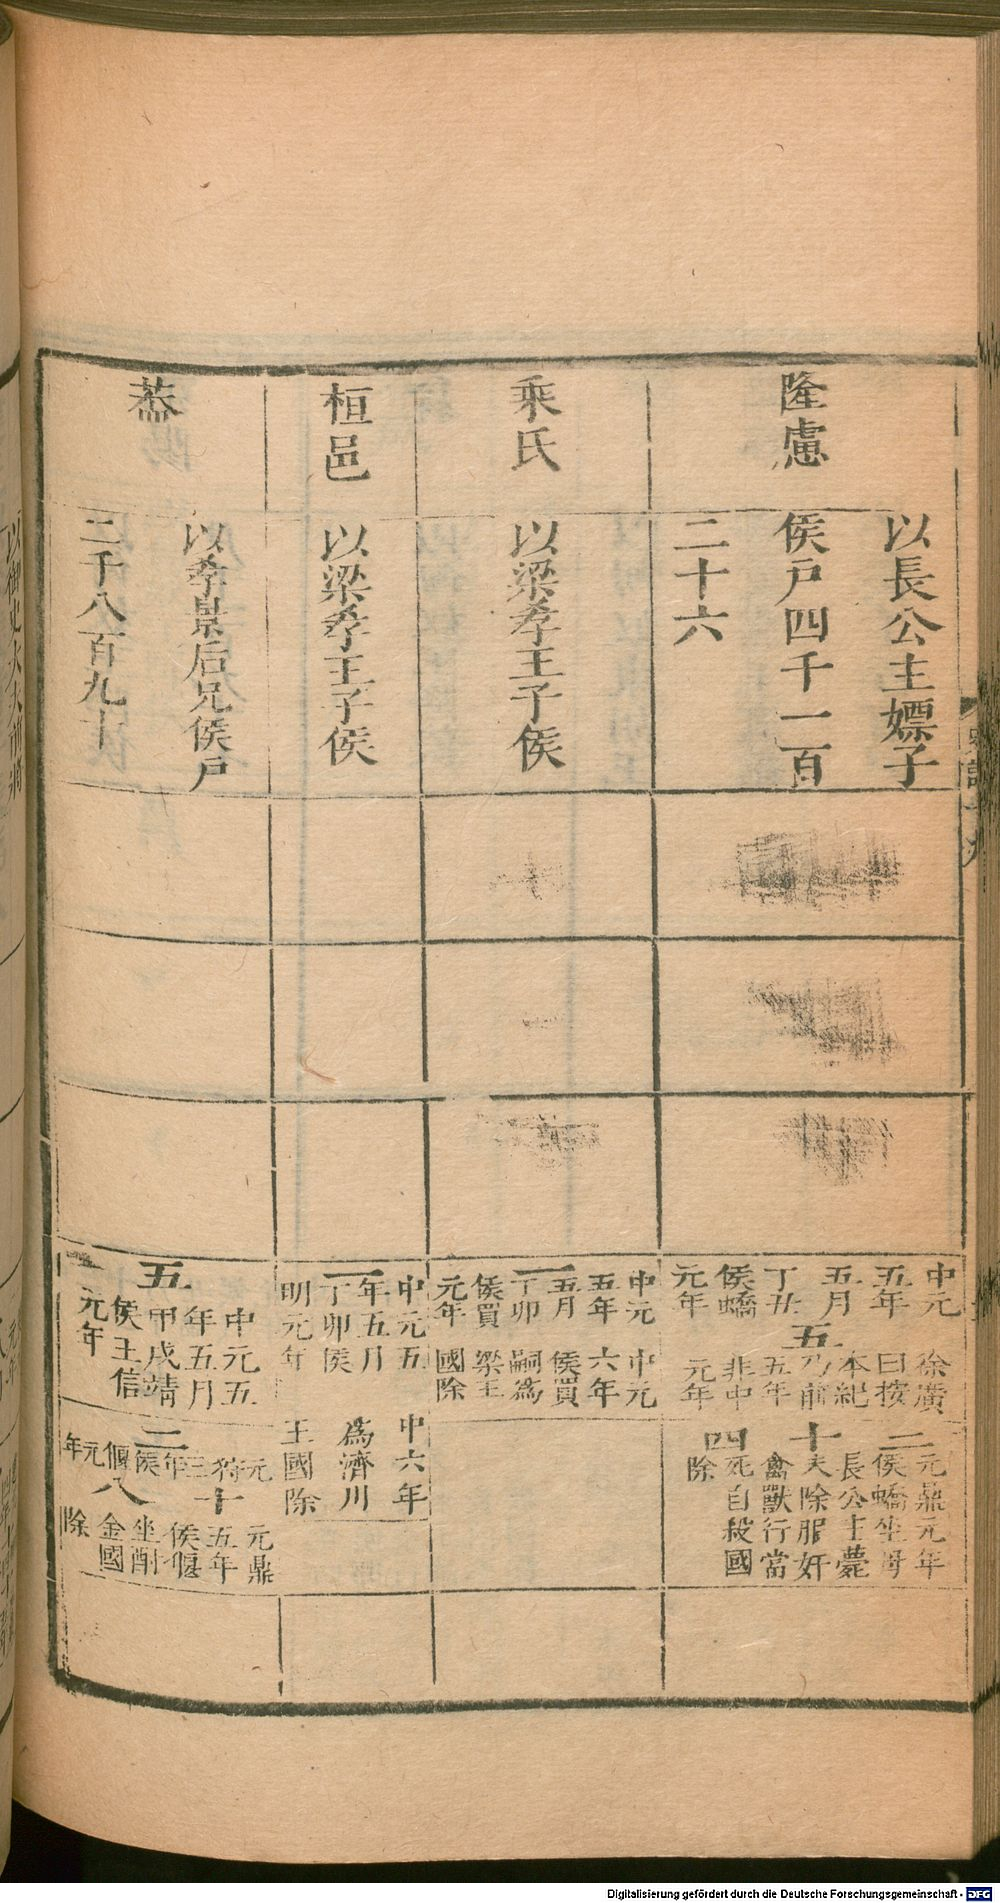 隆慮
以長公主嫖子
侯戸四千一百
二十六
中元
五年
五月
丁丑
侯蟜
元年
五
徐廣
曰按
本紀
乃前
五年
非中
元年
二十四
元鼎元年
侯蟜坐母
長公主薨
未除服奸
禽獸行當
死自殺國
除
乘氏
以梁孝王子侯
一
中元
五年
五月
丁卯
侯買
元年
中元
六年
侯買
嗣爲
梁王
國除
桓邑
以梁孝王子侯
一
中元五
年五月
丁卯侯
明元年
中六年
爲濟川
王國除
葢
以孝景后兄侯戸
二千八百九十
五
中元五
年五月
甲戌靖
侯王信
元年
二
元狩
三年
侯偃
元年
十八
元鼎
五年
侯偃
坐酎
金國
除
Digitalisierung gefördert durch die Deutsche Forschungsgemeinschaft - DFG